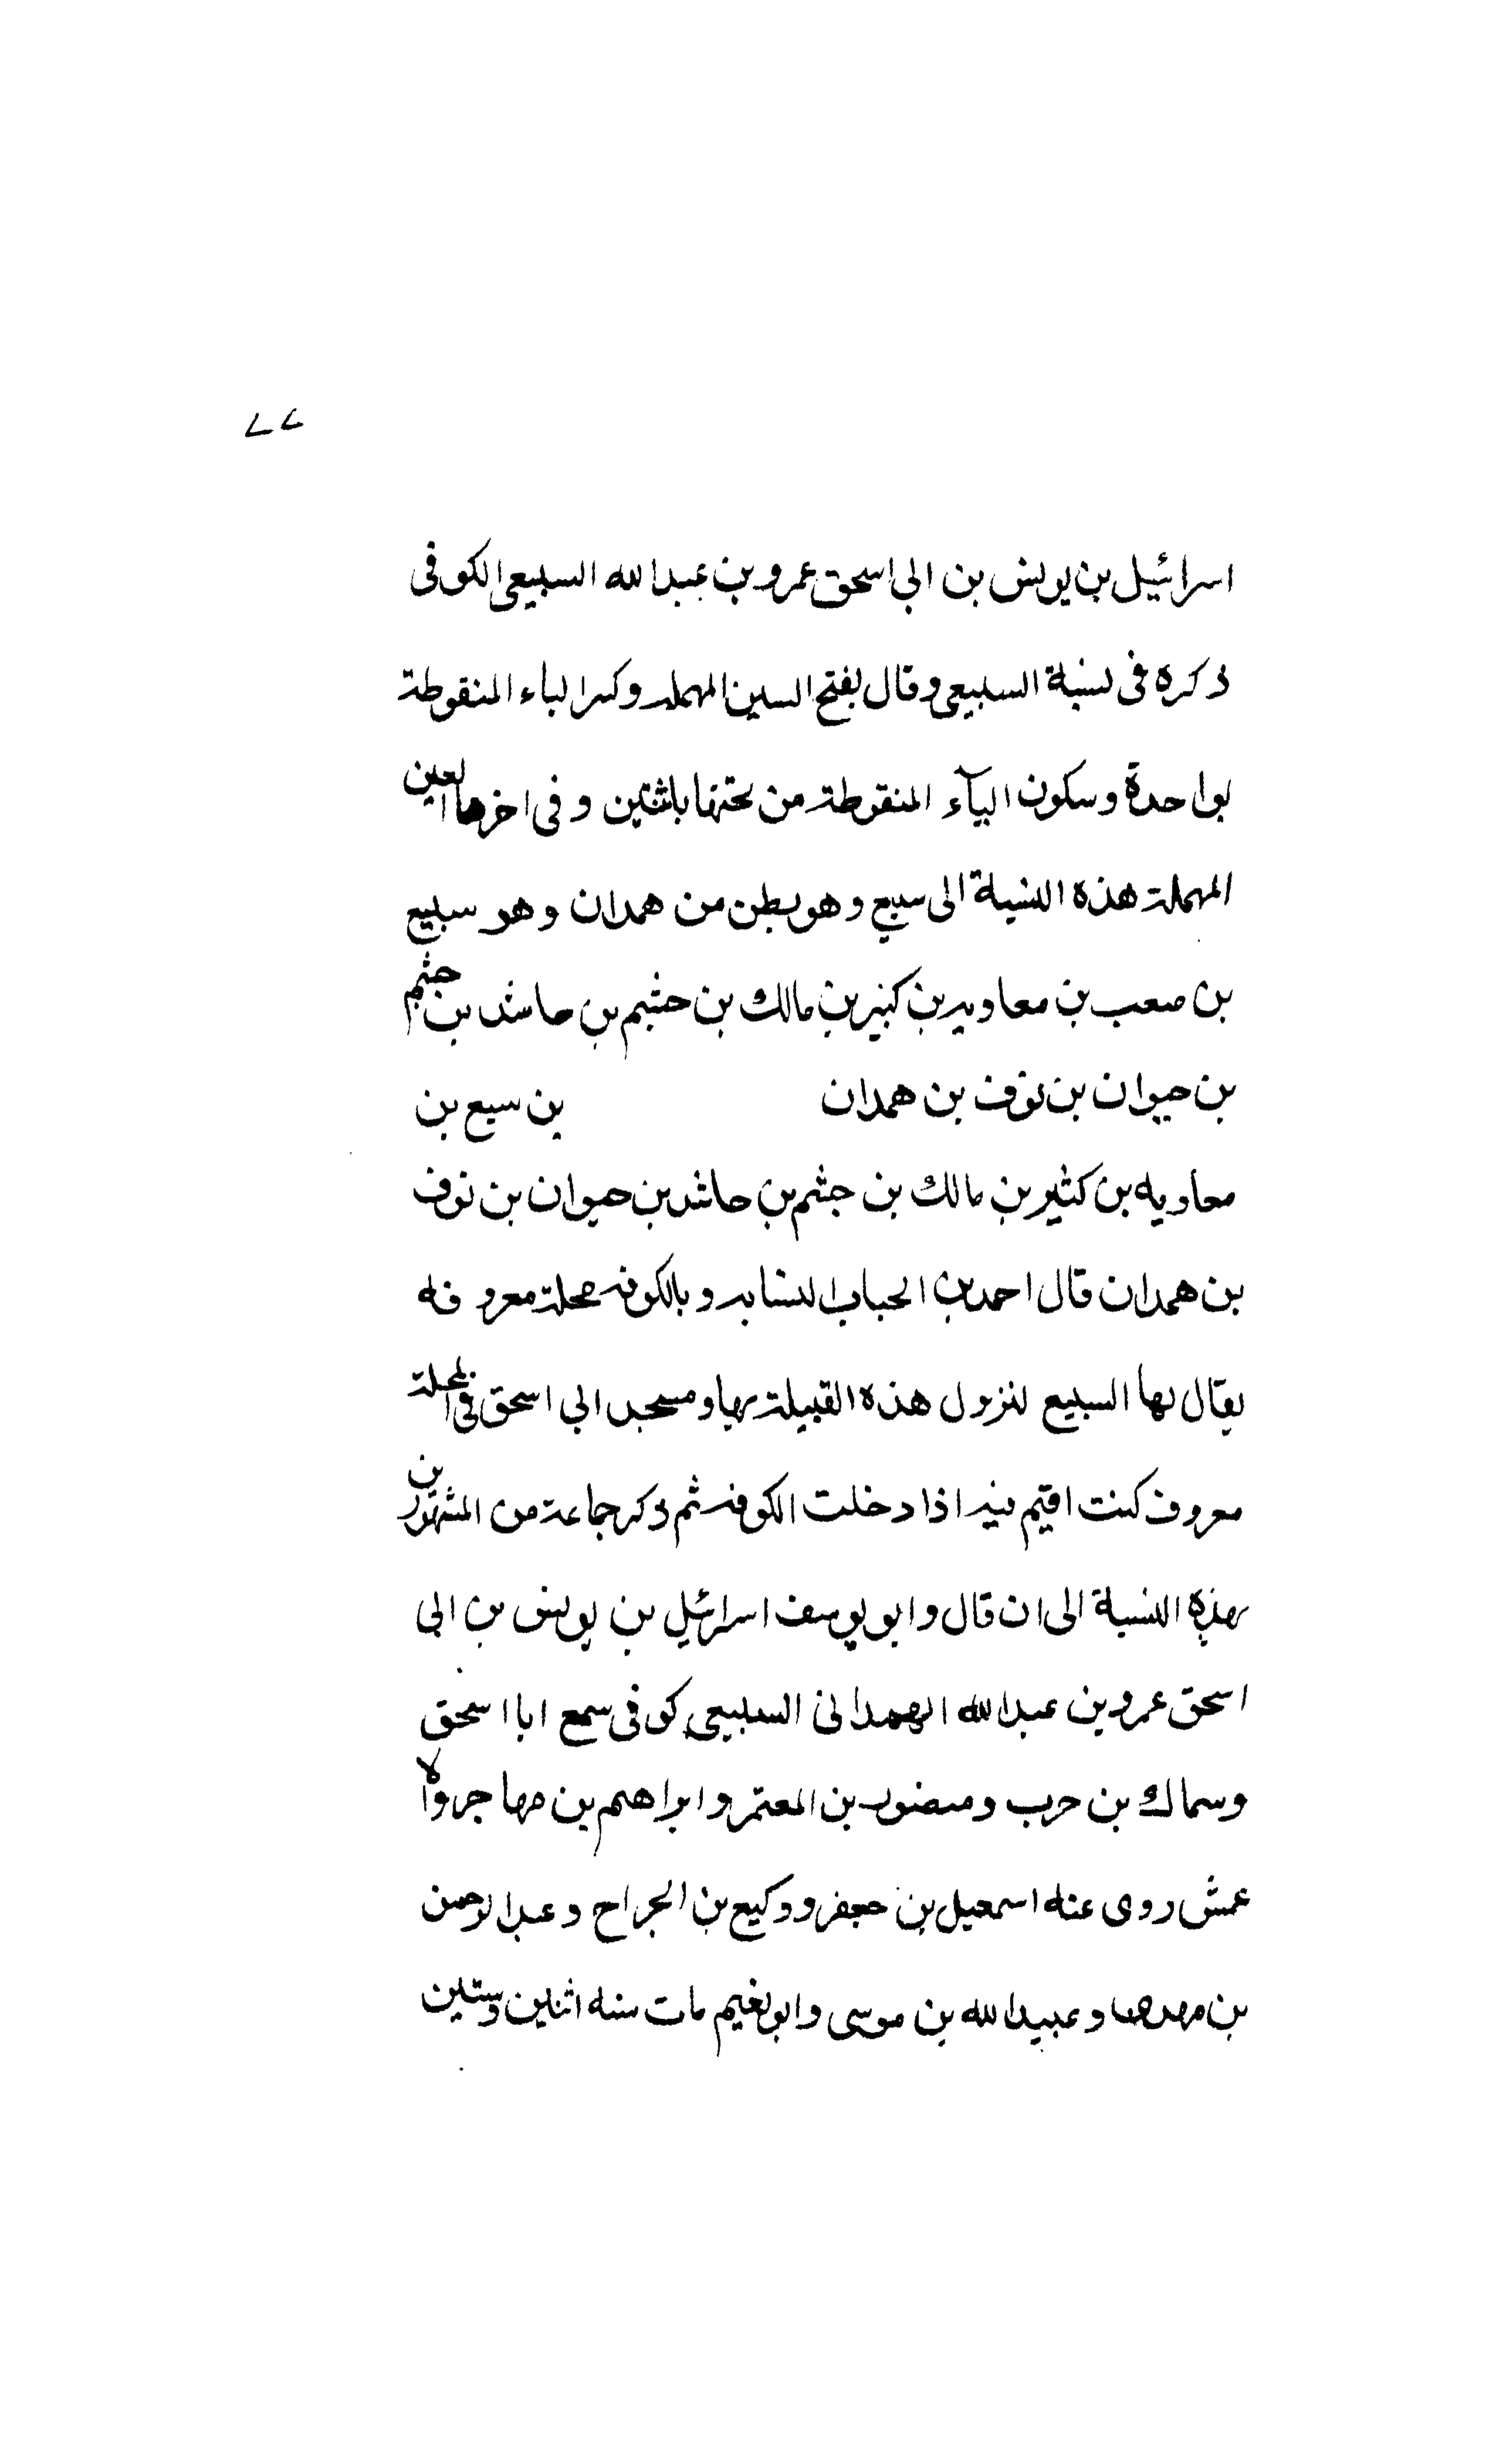 اسرائيل بن يونس بن ابي اسحق عمرو بن عبدالله السبيعي الكوفى
ذكره فى نسبة السبيعي وقال بفتح السين المهمله وكسر الباء المنقوطة
بواحدة وسكون اليآء المنقوطة من تحتها باثنتين وفى اخرها العين
المهملة هذه النسبة الى سبيع وهو بطن من همدان وهو سبيع
بن صعب بن معاويه بن كثير بن مالك بن جشم بن حاشد بن جشم
بن حيوان بن نوف بن همدان بن سبيع بن
معاويه بن كثير بن مالك بن جشم بن حاشد بن حيوان بن نوف
بن همدان قال احمد بن الحباب النسابه وبالكوفه محلة معروفه
يقال لها السبيع لنزول هذه القبيلة بها ومسجد ابي اسحق فى المحلة
معروف كنت اقيم فيه اذا دخلت الكوفه ثم ذكر جماعة من المشهورين
بهذه النسبة الى ان قال وابو يوسف اسرائيل بن يونس بن ابي
اسحق عمرو بن عبدالله الهمدانى السبيعي كوفى سمع ابا اسحق
وسماك بن حرب ومنصور بن المعتمر وابراهيم بن مهاجر والا
عمش روى عنه اسمعيل بن جعفر ووكيع بن الجراح وعبدالرحمن
بن مهدى وعبيدالله بن موسى وابو نعيم مات سنه اثنين وستين